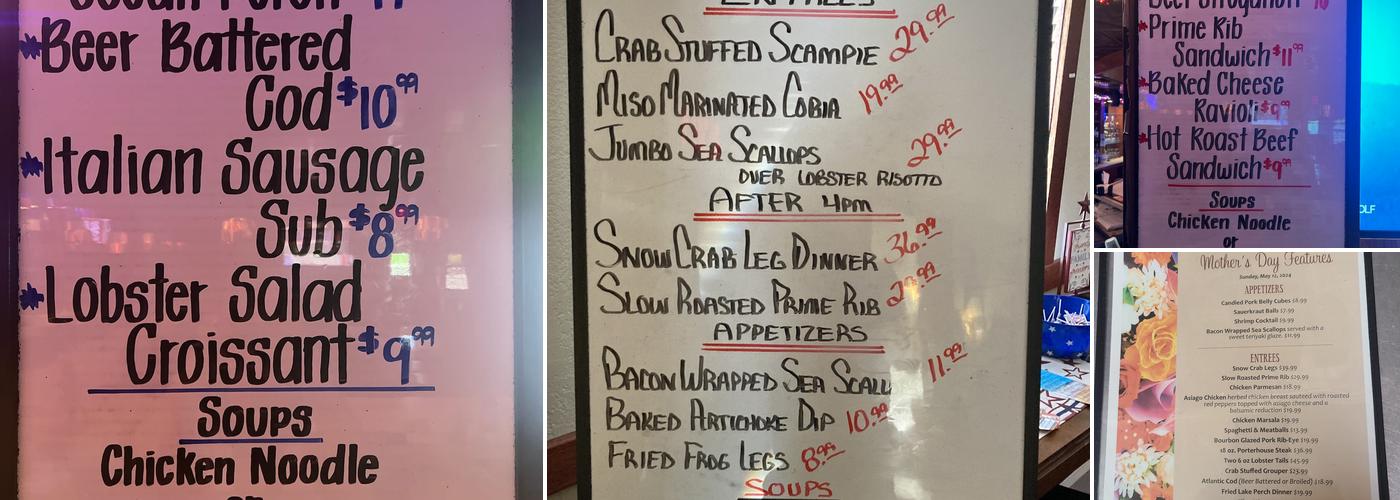 Ocean Perch
*Beer Battered
Cod $10.99
*Italian Sausage
Sub $8.99
*Lobster Salad
Croissant $9.99
Soups
Chicken Noodle
or
ENTREES
CRAB STUFFED SCAMPIE 29.99
MISO MARINATED COBIA 19.99
JUMBO SEA SCALLOPS 29.99
OVER LOBSTER RISOTTO
AFTER 4PM
SNOW CRAB LEG DINNER 36.99
SLOW ROASTED PRIME RIB
APPETIZERS
BACON WRAPPED SEA SCALL 11.99
BAKED ARTICHOKE DIP 10.99
FRIED FROG LEGS 8.99
SOUPS
Beef Stroganoff
*Prime Rib
Sandwich $11.99
*Baked Cheese
Ravioli $9.99
*Hot Roast Beef
Sandwich $9.99
Soups
Chicken Noodle
or
OLF
Mother's Day Features
Sunday, May 12, 2024
APPETIZERS
Candied Pork Belly Cubes $8.99
Sauerkraut Balls $7.99
Shrimp Cocktail $9.99
Bacon Wrapped Sea Scallops served with a
sweet teriyaki glaze. $11.99
ENTREES
Snow Crab Legs $39.99
Slow Roasted Prime Rib $29.99
Chicken Parmesan $18.99
Asiago Chicken herbed chicken breast sauteed with roasted
red peppers topped with asiago cheese and a
balsamic reduction $19.99
Chicken Marsala $19.99
Spaghetti & Meatballs $13.99
Bourbon Glazed Pork Rib-Eye $19.99
18 oz. Porterhouse Steak $36.99
Two 6 oz Lobster Tails $45.99
Crab Stuffed Grouper $23.99
Atlantic Cod (Beer Battered or Broiled) $18.99
Fried Lake Perch Dinner $19.99